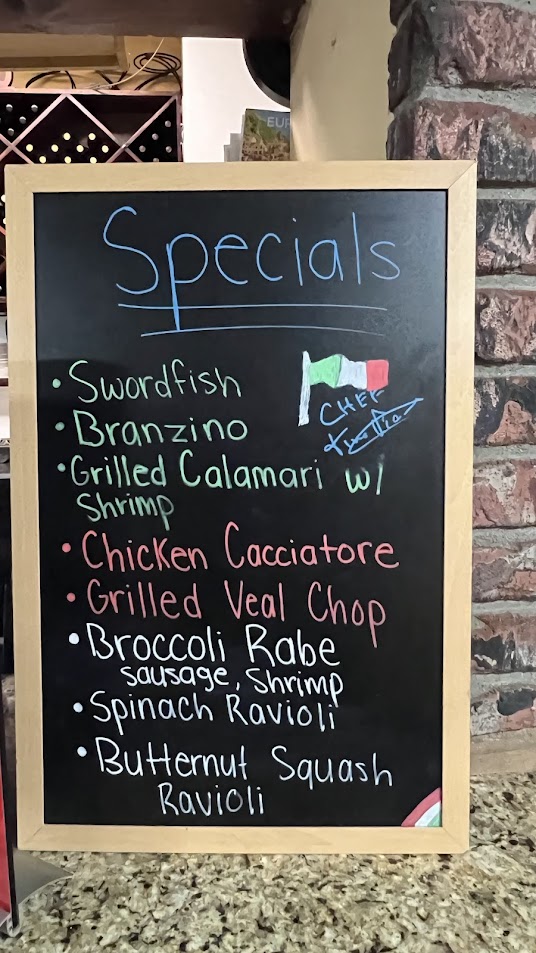 EUR
Specials
• Swordfish
• Branzino
• Grilled Calamari w/
Shrimp
• Chicken Cacciatore
• Grilled Veal Chop
• Broccoli Rabe
sausage, Shrimp
• Spinach Ravioli
• Butternut Squash
Ravioli
CHEF